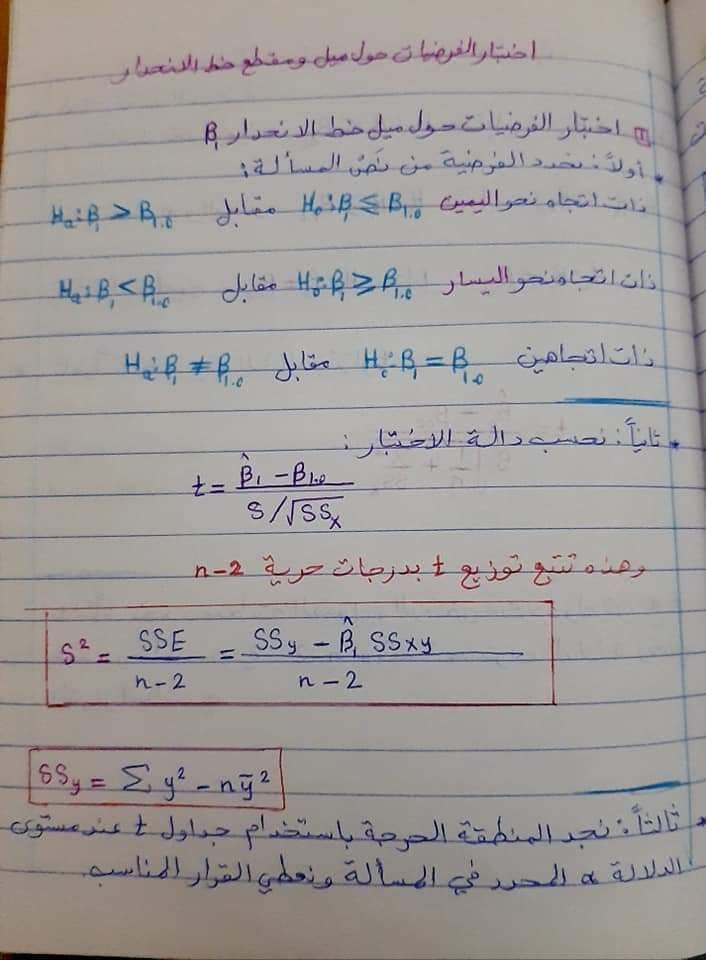 اختبار الفرضيات حول ميل ومقطع خط الانحدار
1 اختبار الفرضيات حول ميل خط الانحدار β₁
• أولاً: نحدد الفرضية من نَصّ المسألة:
ذات اتجاه نحو اليمين H₀: β₁ ≤ β₁.₀ مقابل Hₐ: β₁ > β₁.₀
ذات اتجاه نحو اليسار H₀: β₁ ≥ β₁.₀ مقابل Hₐ: β₁ < β₁.₀
ذات اتجاهين H₀: β₁ = β₁.₀ مقابل Hₐ: β₁ ≠ β₁.₀
• ثانياً: نحسب دالة الاختبار:
t = (β̂₁ - β₁.₀) / (S/√SSₓ)
وهذه تتبع توزيع t بدرجات حرية n-2
S² = SSE / (n-2) = (SSy - β̂₁ SSxy) / (n-2)
SSy = Σ y² - nȳ²
• ثالثاً: نجد المنطقة الحرجة باستخدام جداول t عند مستوى
الدلالة α المحدد في المسألة ونعطي القرار المناسب.